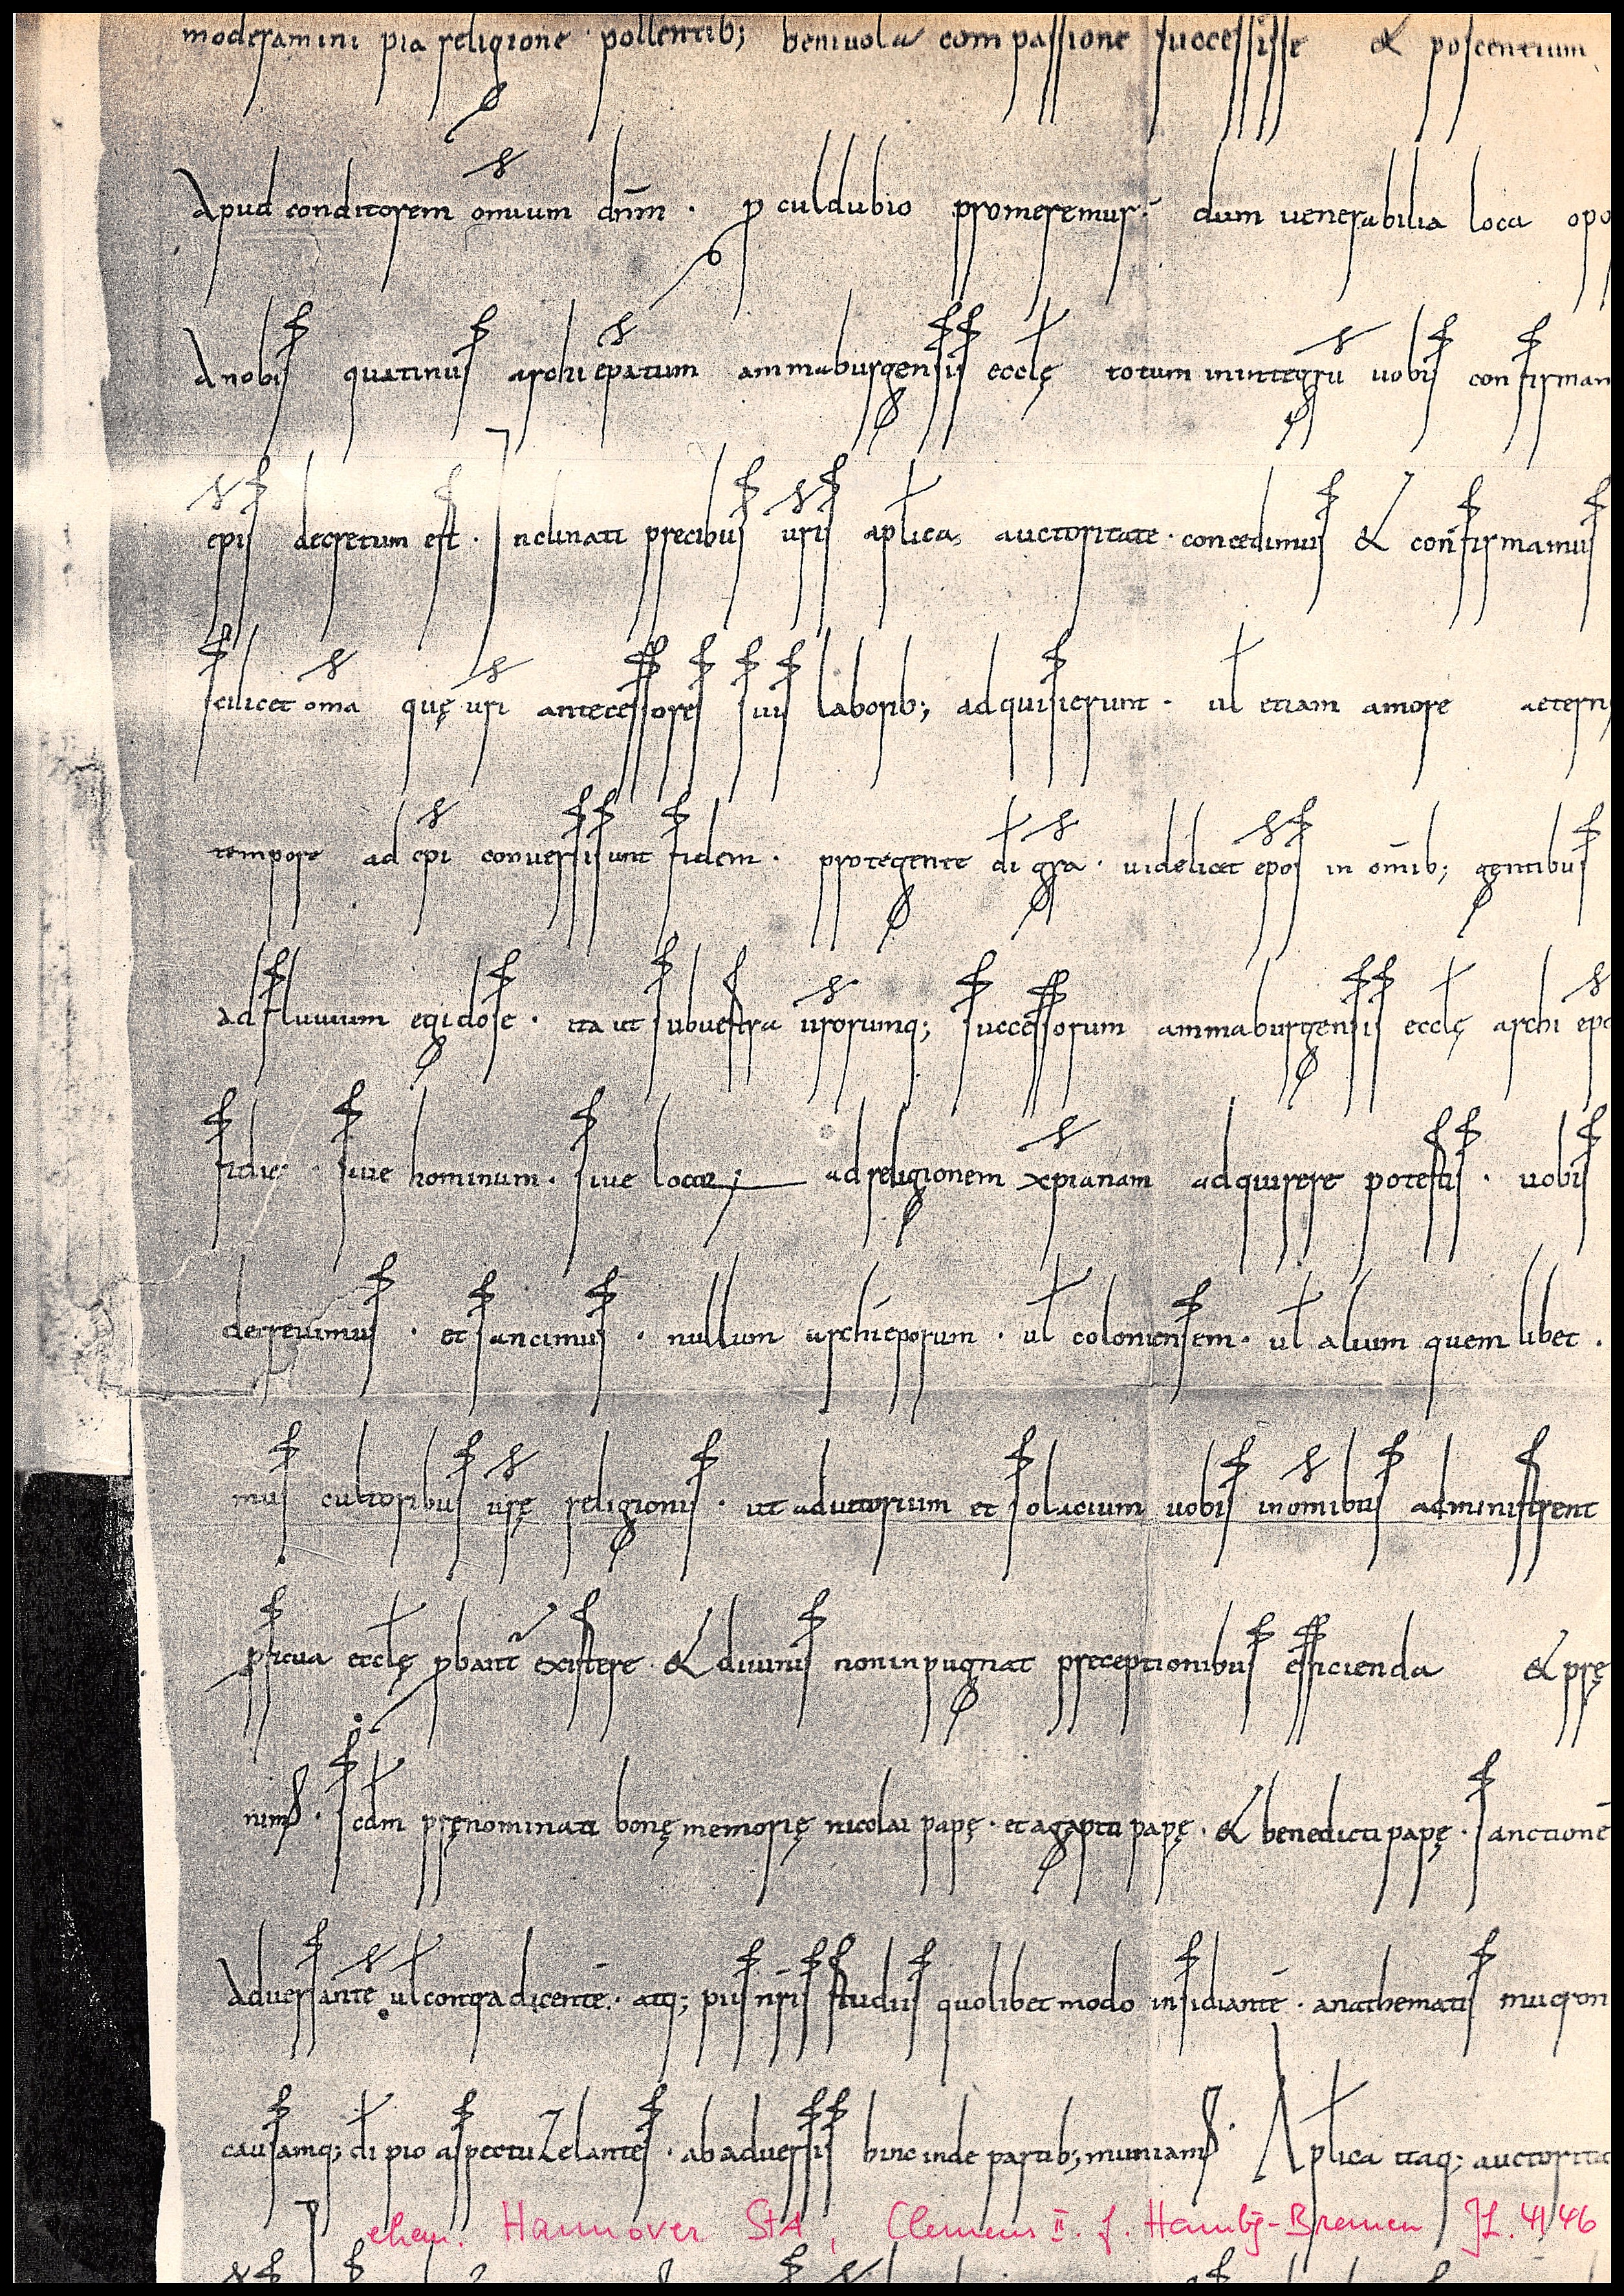 moderamini pia religione pollentib; benivola compassione succesisse & poscentium
Apud conditorem omium dnm . p culdubio promeremur . dum venerabilia loca opo
A nobis quatinus archiepatum ammaburgensis eccle totum inintegru vobis confirmam
epis decretum est . Inclinati precibus uris aplica auctoritate . concedimus & confirmamus
scilicet oma que uri antecessores suis laborib; adquisierunt . ul etiam amore aetern
tempore ad epi conversi sunt fidem . protegente di gra . videlicet epos in omib; gentibus
ad fluvium egidose . ita ut sub vestra urorumq; successorum ammaburgensis eccle archi epo
sive hominum . sive locor; ad religionem xpianam adquirere potestis . vobis
decrevimus . et sancimus . nullum archieporum . ul coloniensem . ul alium quem libet .
mus cultoribus ure religionis . ut adiutorium et solacium vobis in omibus administrent
pficua eccle pbant existere & divinis non inpugnat preceptionibus efficienda & pre
nims . scdm prenominati bone memorie nicolai pape . et agapiti pape . & benedicti pape . sanctionē
Adversante ul contradicentē . atq; piis nris studiis quolibet modo insidiantē . anathematis mucron
causamq; di pio aspectu Zelantes . ab adversis hinc inde partib; muniams . Aplica itaq; auctorita
ehem. Hannover StA, Clemens II. f. Hambg-Bremen JL. 4146